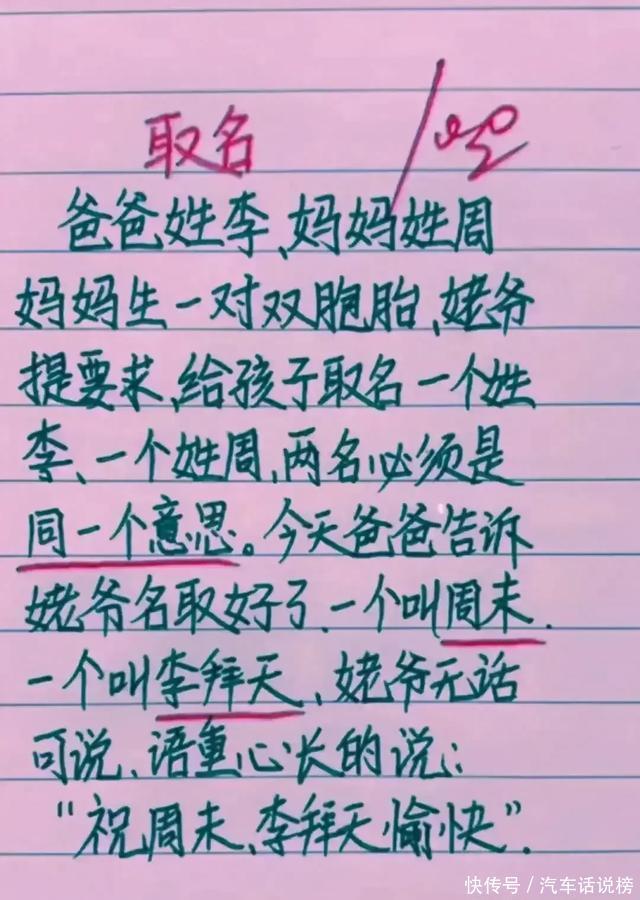 取名
爸爸姓李、妈妈姓周
妈妈生一对双胞胎、姥爷
提要求、给孩子取名一个姓
李、一个姓周,两名必须是
同一个意思。今天爸爸告诉
姥爷名取好了、一个叫周末.
一个叫李拜天、姥爷无话
可说、语重心长的说:
“祝周末、李拜天愉快”.
快传号/汽车话说榜